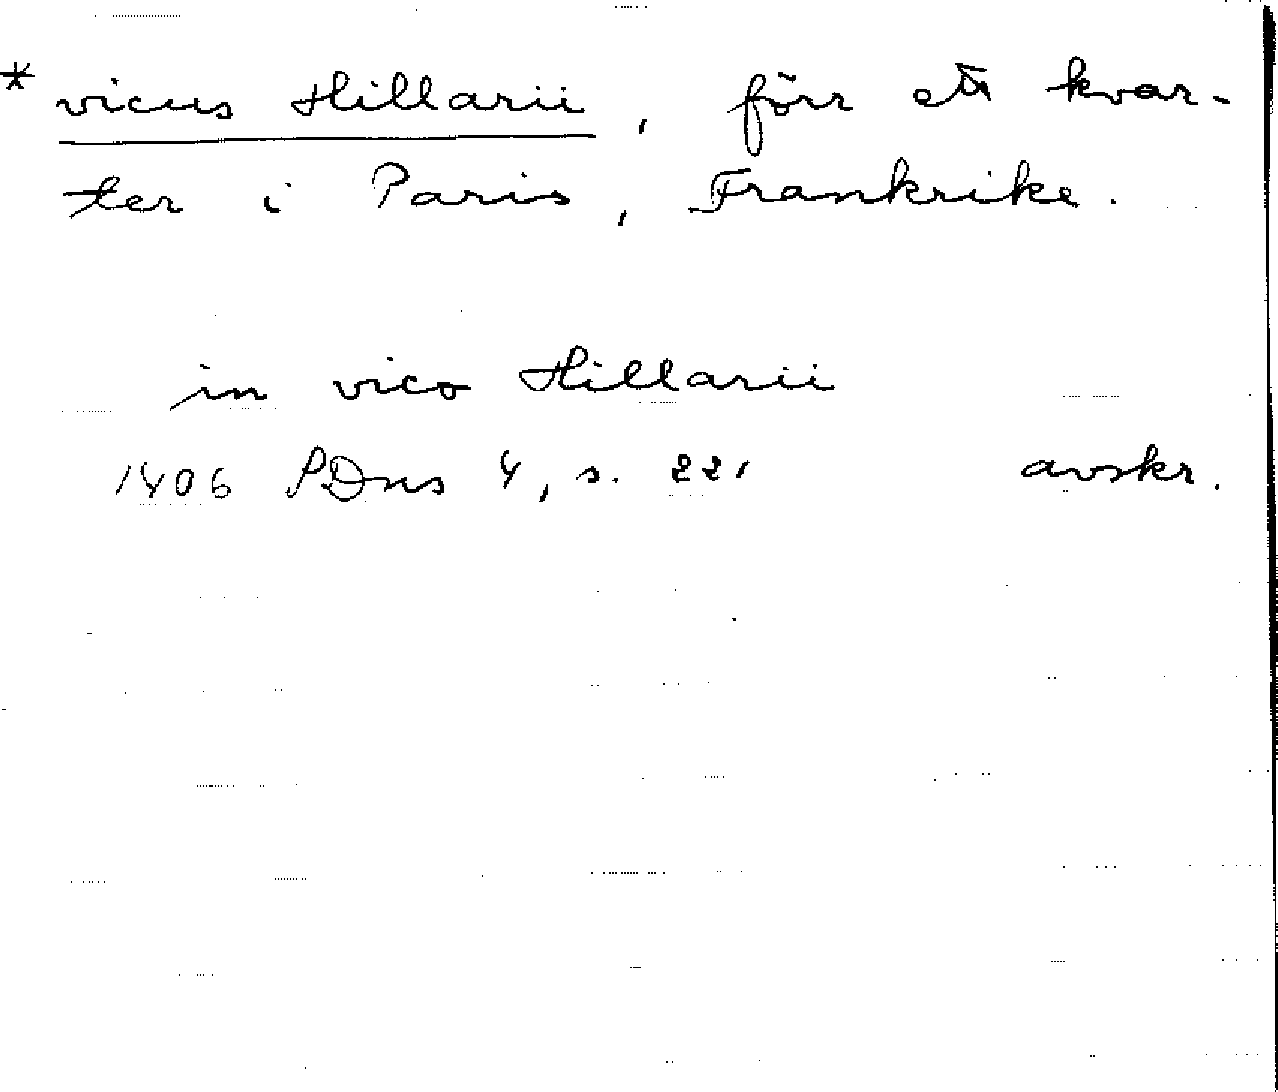 * vicus Hillarii, förr ett kvar-
ter i Paris, Frankrike.
in vico Hillarii
1406 PDns 4, s. 221 avskr.